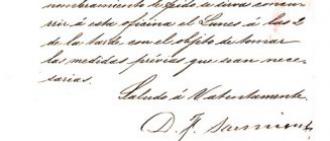 nombramiento legido se sirva concu-
rrir á esta oficina el Lunes á las 2
de la tarde con el objeto de tomar
las medidas prévias que sean nece-
sarias.
Saludo á V atentamente
D. F. Sarmiento